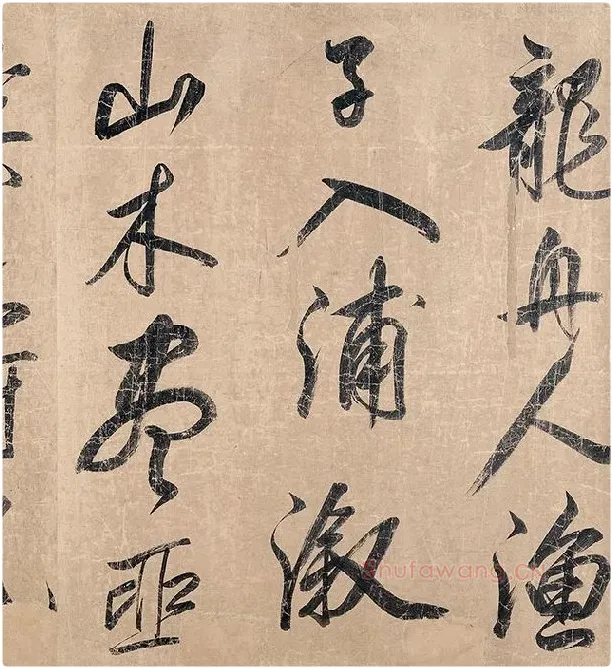 龍舟人漁
子入浦溆
山木盡亞
Shufawang.cn